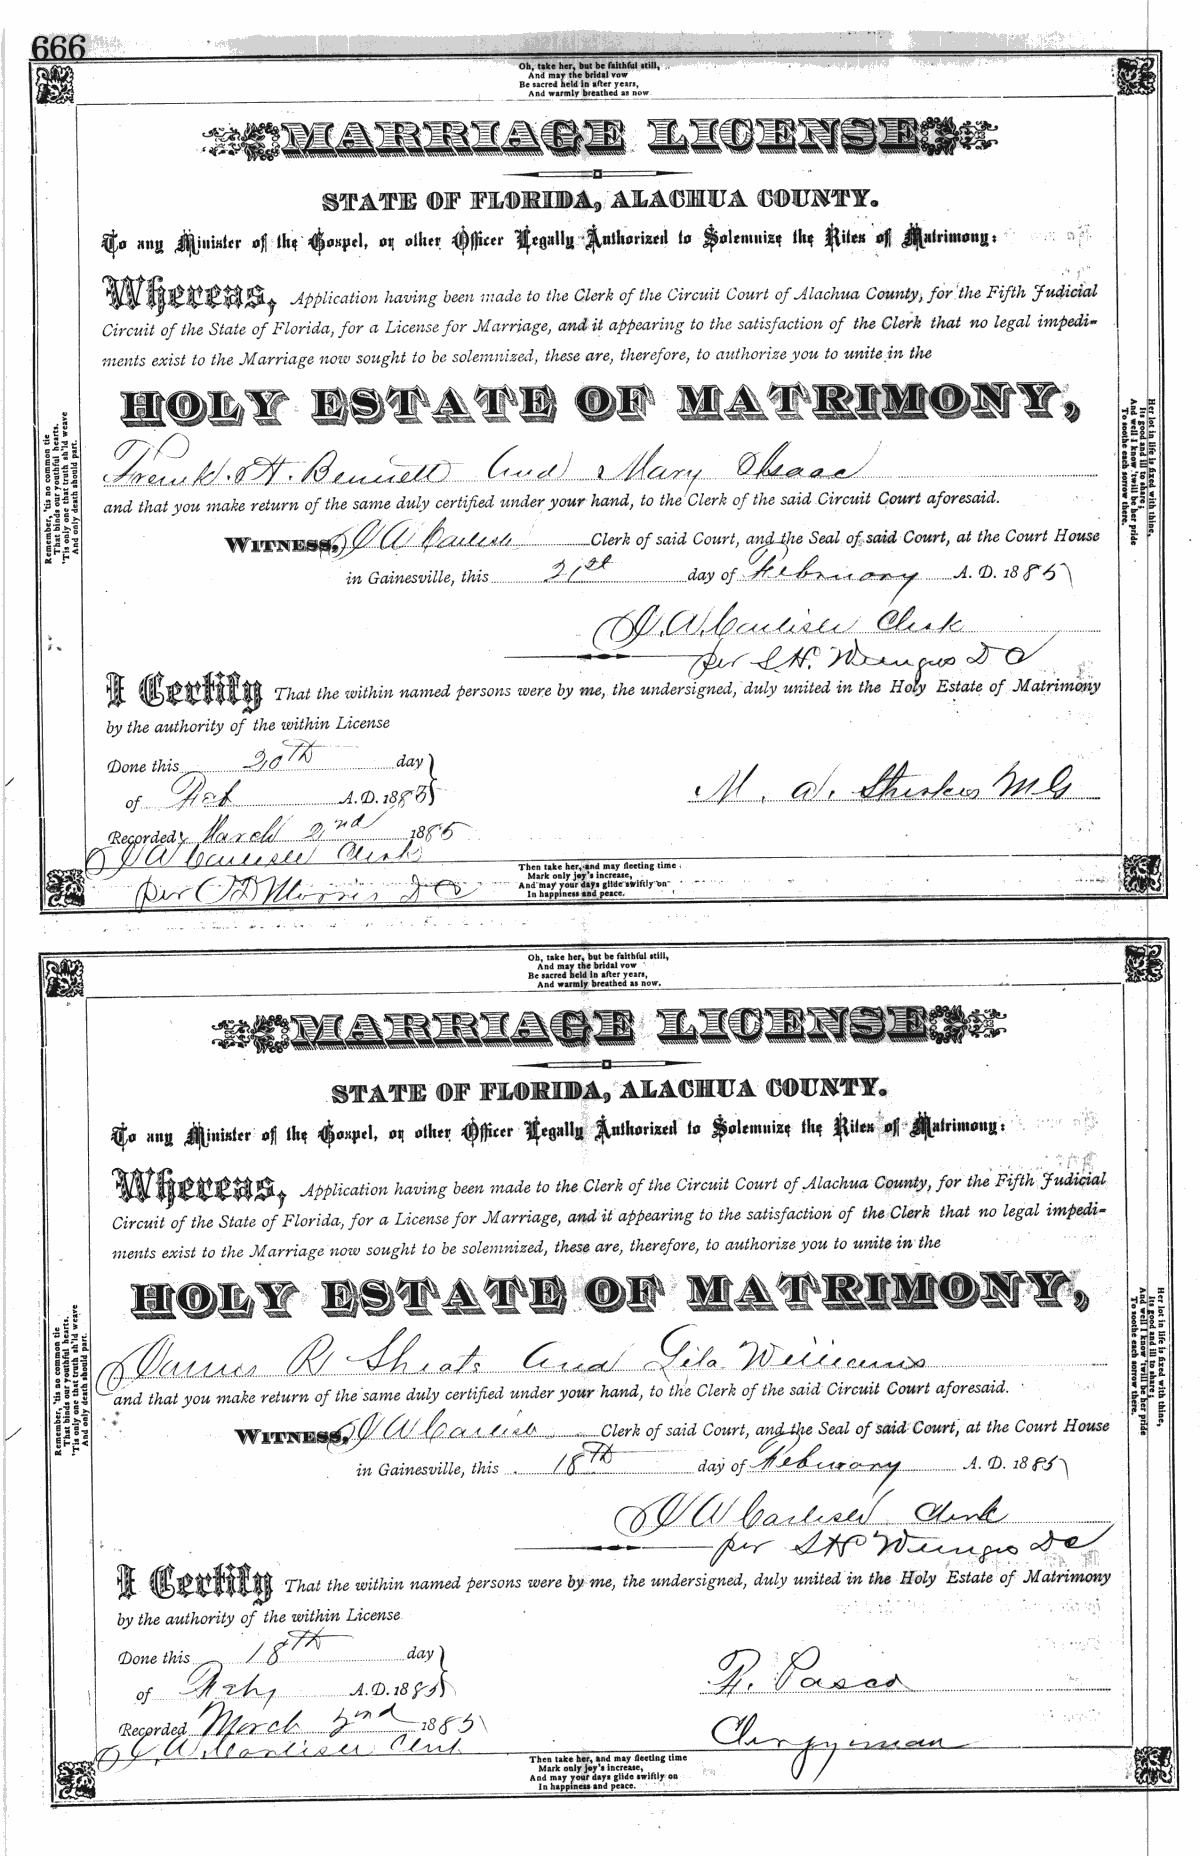 666
Oh, take her, but be faithful still,
And may the bridal vow
Be sacred held in after years,
And warmly breathed as now
MARRIAGE LICENSE
STATE OF FLORIDA, ALACHUA COUNTY.
To any Minister of the Gospel, or other Officer Legally Authorized to Solemnize the Rites of Matrimony:
Whereas, Application having been made to the Clerk of the Circuit Court of Alachua County, for the Fifth Judicial
Circuit of the State of Florida, for a License for Marriage, and it appearing to the satisfaction of the Clerk that no legal impedi-
ments exist to the Marriage now sought to be solemnized, these are, therefore, to authorize you to unite in the
HOLY ESTATE OF MATRIMONY,
Frank. H. Bennett And Mary Isaac
and that you make return of the same duly certified under your hand, to the Clerk of the said Circuit Court aforesaid.
WITNESS, J A Carlisle Clerk of said Court, and the Seal of said Court, at the Court House
in Gainesville, this 21st day of February A. D. 1885
J. A. Carlisle Clerk
per S H. D C
I Certify That the within named persons were by me, the undersigned, duly united in the Holy Estate of Matrimony
by the authority of the within License
Done this 20th day
of Feb A. D. 1885
M. G
Recorded March 2nd 1885
J A Carlisle Clerk
per Morris D C
Remember, 'tis no common tie
That binds our youthful hearts.
'Tis only one that truth sh'ld weave
And only death should part.
Her lot in life is fixed with thine,
Its good and ill to share;
And well I know 'twill be her pride
To soothe each sorrow there.
Then take her, and may fleeting time
Mark only joy's increase,
And may your days glide swiftly on
In happiness and peace.
Oh, take her, but be faithful still,
And may the bridal vow
Be sacred held in after years,
And warmly breathed as now.
MARRIAGE LICENSE
STATE OF FLORIDA, ALACHUA COUNTY.
To any Minister of the Gospel, or other Officer Legally Authorized to Solemnize the Rites of Matrimony:
Whereas, Application having been made to the Clerk of the Circuit Court of Alachua County, for the Fifth Judicial
Circuit of the State of Florida, for a License for Marriage, and it appearing to the satisfaction of the Clerk that no legal impedi-
ments exist to the Marriage now sought to be solemnized, these are, therefore, to authorize you to unite in the
HOLY ESTATE OF MATRIMONY,
James R Sheats And Lila Williams
and that you make return of the same duly certified under your hand, to the Clerk of the said Circuit Court aforesaid.
WITNESS, J A Carlisle Clerk of said Court, and the Seal of said Court, at the Court House
in Gainesville, this 18th day of February A. D. 1885
J A Carlisle Clerk
per S H D C
I Certify That the within named persons were by me, the undersigned, duly united in the Holy Estate of Matrimony
by the authority of the within License
Done this 18th day
of Feby A. D. 1885
F. Pasco
Recorded March 2nd 1885
Clergyman
J A. Carlisle Clerk
Remember, 'tis no common tie
That binds our youthful hearts.
'Tis only one that truth sh'ld weave
And only death should part.
Her lot in life is fixed with thine,
Its good and ill to share;
And well I know 'twill be her pride
To soothe each sorrow there.
Then take her, and may fleeting time
Mark only joy's increase,
And may your days glide swiftly on
In happiness and peace.